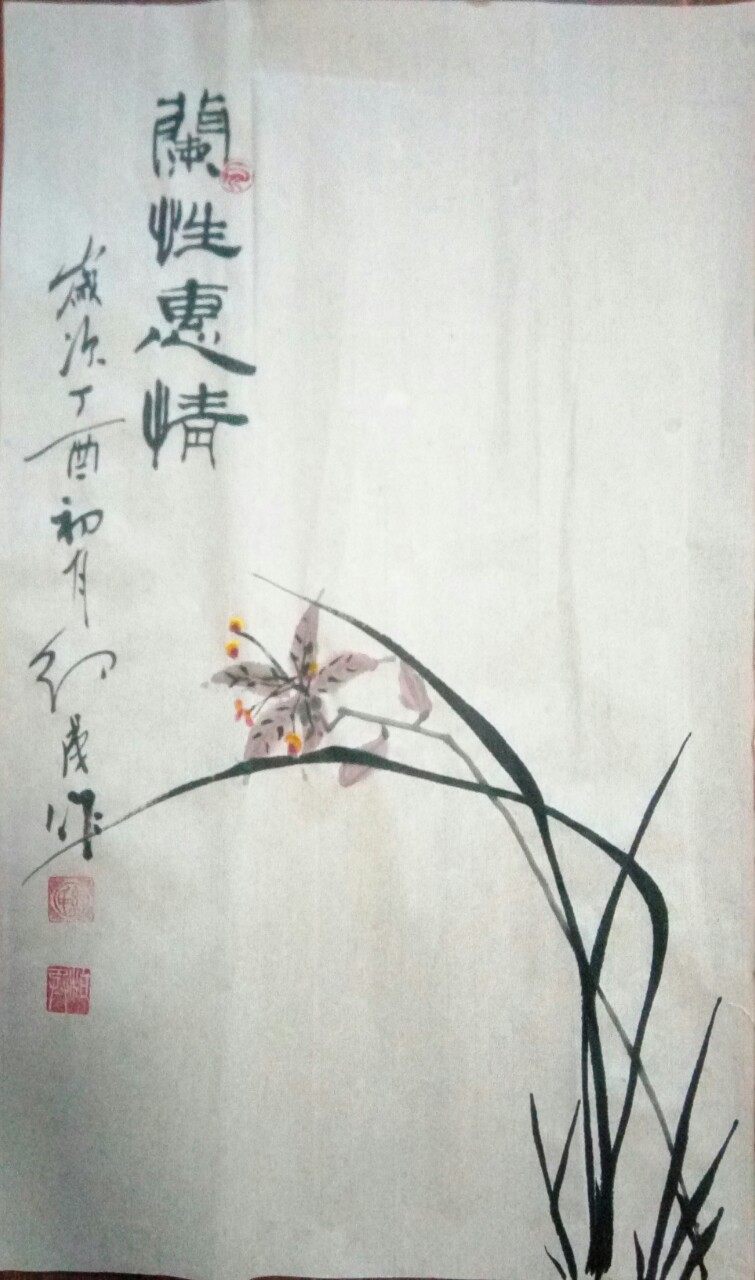 蘭性惠情
歲次丁酉初月紅茂作